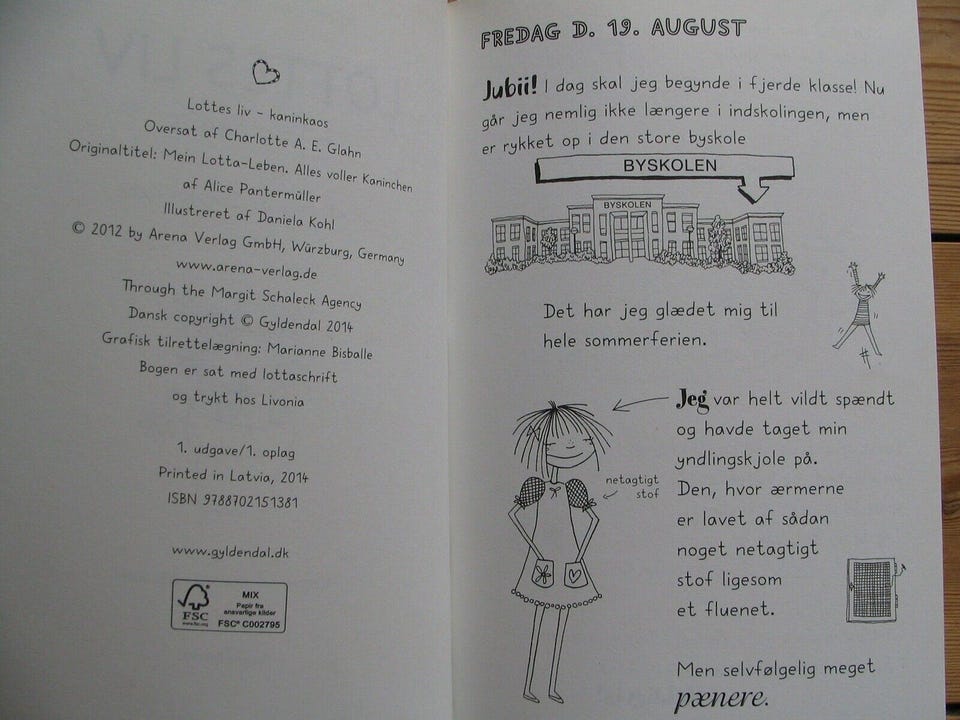 Lottes liv - kaninkaos
Oversat af Charlotte A. E. Glahn
Originaltitel: Mein Lotta-Leben. Alles voller Kaninchen
af Alice Pantermüller
Illustreret af Daniela Kohl
© 2012 by Arena Verlag GmbH, Würzburg, Germany
www.arena-verlag.de
Through the Margit Schaleck Agency
Dansk copyright © Gyldendal 2014
Grafisk tilrettelægning: Marianne Bisballe
Bogen er sat med lottaschrift
og trykt hos Livonia
1. udgave/1. oplag
Printed in Latvia, 2014
ISBN 9788702151381
www.gyldendal.dk
FSC
www.fsc.org
MIX
Papir fra
ansvarlige kilder
FSC® C002795
FREDAG D. 19. AUGUST
Jubii! I dag skal jeg begynde i fjerde klasse! Nu
går jeg nemlig ikke længere i indskolingen, men
er rykket op i den store byskole
BYSKOLEN
BYSKOLEN
Det har jeg glædet mig til
hele sommerferien.
Jeg var helt vildt spændt
og havde taget min
yndlingskjole på.
netagtigt
stof
Den, hvor ærmerne
er lavet af sådan
noget netagtigt
stof ligesom
et fluenet.
Men selvfølgelig meget
pænere.